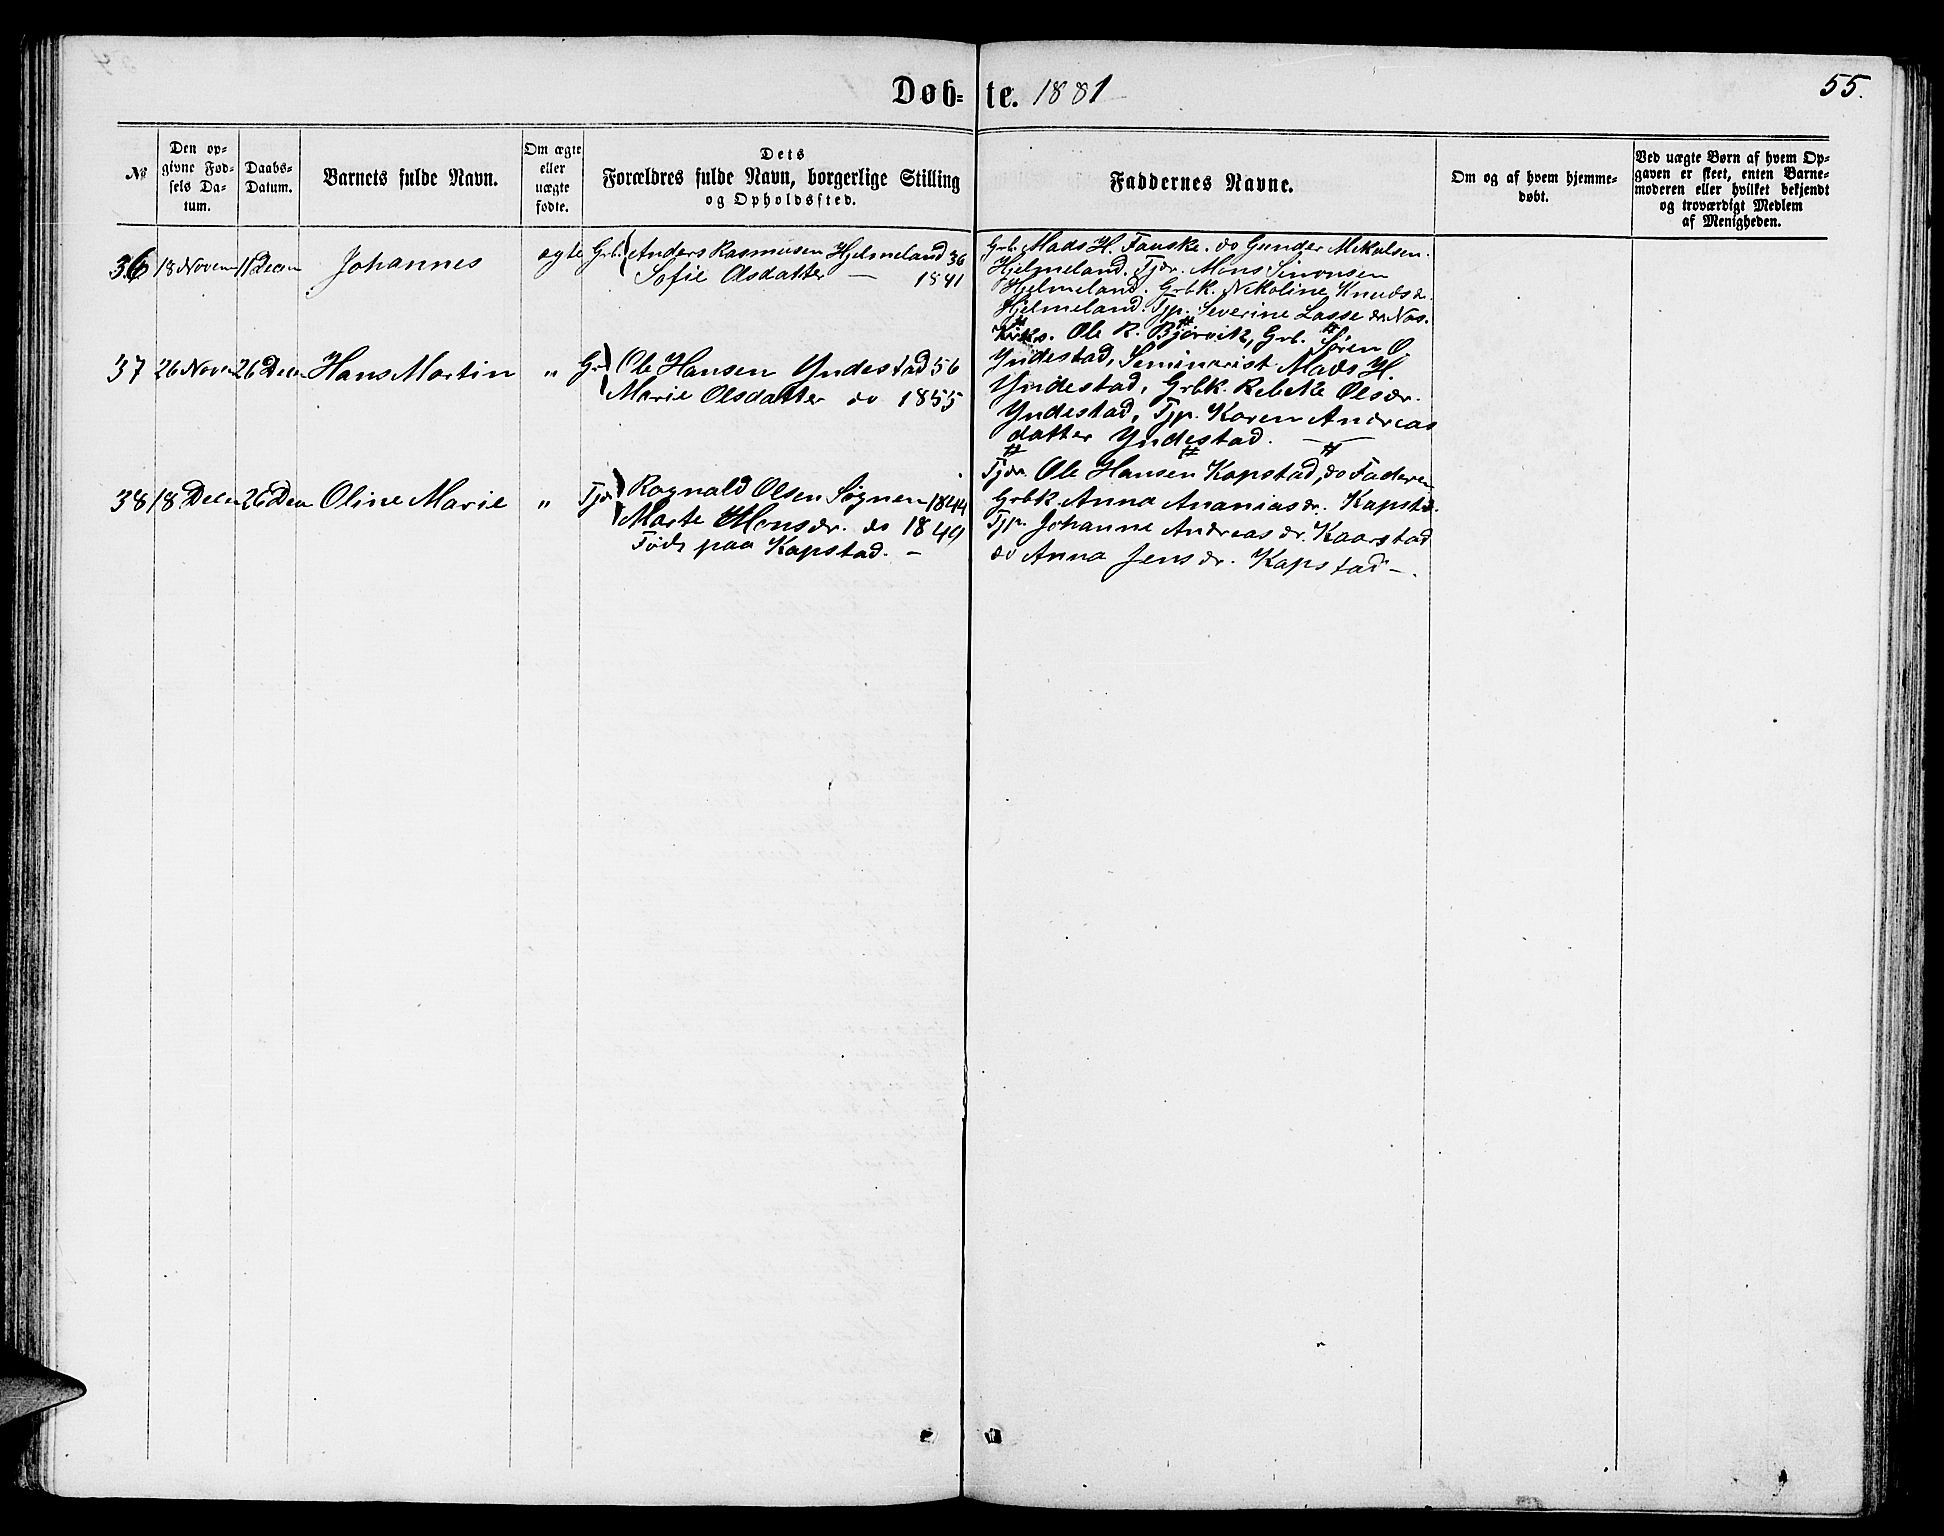 Døb=te. 1881
55.
№
Den op-
givne Fød-
sels Da-
tum.
Daabs-
Datum.
Barnets fulde Navn.
Om ægte
eller
uægte
fødte.
Dets
Forældres fulde Navn, borgerlige Stilling
og Opholdssted.
Faddernes Navne.
Om og af hvem hjemme-
døbt.
Ved uægte Børn af hvem Op-
gaven er skeet, enten Barne-
moderen eller hvilket bekjendt
og troværdigt Medlem
af Menigheden.
36 13 Novem 11 Decem Johannes ægte Grb. Anders Rasmusen Hjelmeland 36
Sofie Olsdatter — 1841
Grb. Mads H. Fauske. do Gunder Mekalsen.
Hjelmeland. Tjdr. Mons Simonsen
Hjelmeland. Grbk. Nekoline Knudsdr.
Hjelmeland. Tjp. Severine Lassedr.
37 26 Novem 26 Decem Hans Martin " Gr Ole Hansen Yndestad 56
Marie Olsdatter do 1855
Ole R. Bjørvik, Grb. Søren O.
Yndestad, Seminarist Mads H.
Yndestad, Grbk. Rebekke Olsdr.
Yndestad, Tjp. Karen Andreas
datter Yndestad.
38 18 Decem 26 Dec Oline Marie " Tjdr Ragnald Olsen Sognen 1844
Marte Monsdr. do 1849
Født paa Kapstad. —
Tjdr. Ole Hansen Kapstad, do Faderen
Grbk Anna Ananiasdr. Kapstd.
Tjp. Johanne Andreasdr. Kaarstad
do Anna Jensdr. Kapstad —.